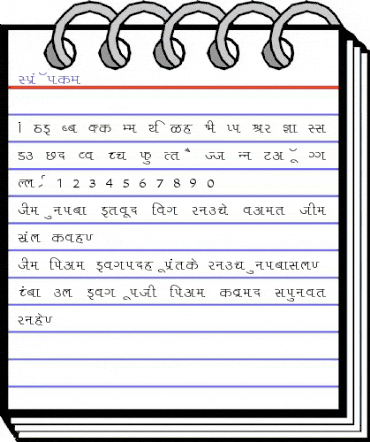 स्प्रॅपकम
ठइ ब्ब क्क म्म िळह भी प्प श्रर शा स्स
ड3 छद व्व च्च फु त्त ै ज्ज न्न टअॅ ग्ग
ल्ल 1 2 3 4 5 6 7 8 9 0
जीम ुनपबा इतवूद विग रनउचे वअमत जीम
कवहण
जीम पिअम इवगपदह ूप्रंतके रनउच ुनपबासलण
श्रंबा उल इवग ूपजी पिअम कव्रमद सपुनवत
रनहेण